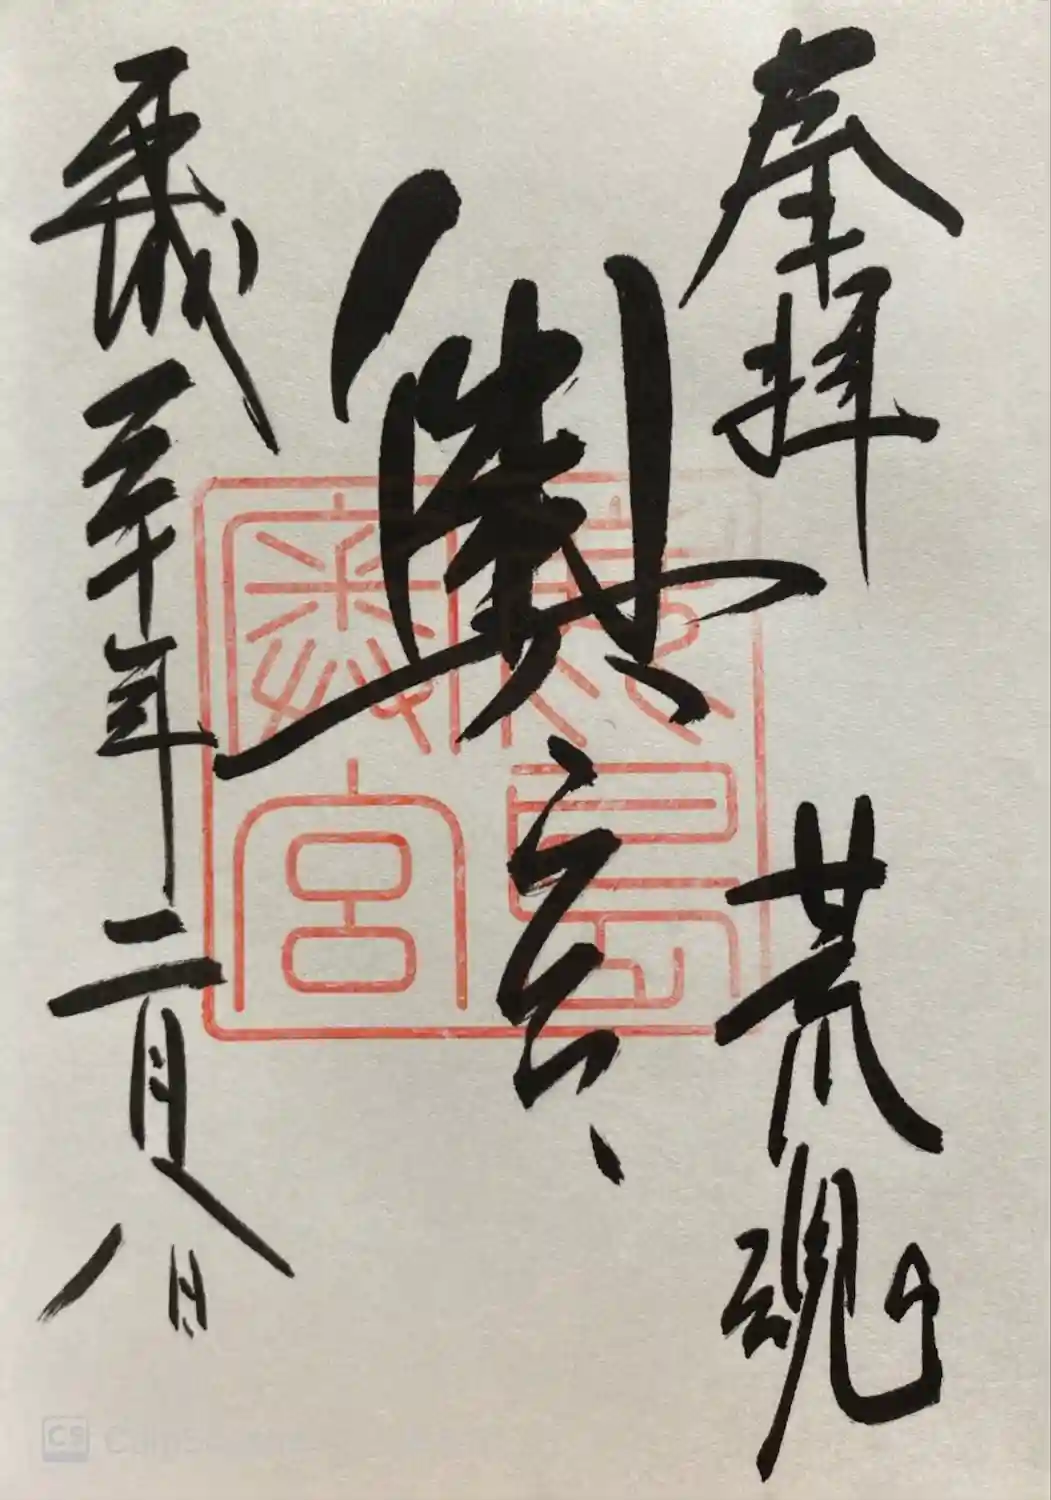 奉拝　荒魂
奥宮
平成三十年二月八日
鹿島
奥宮
CS